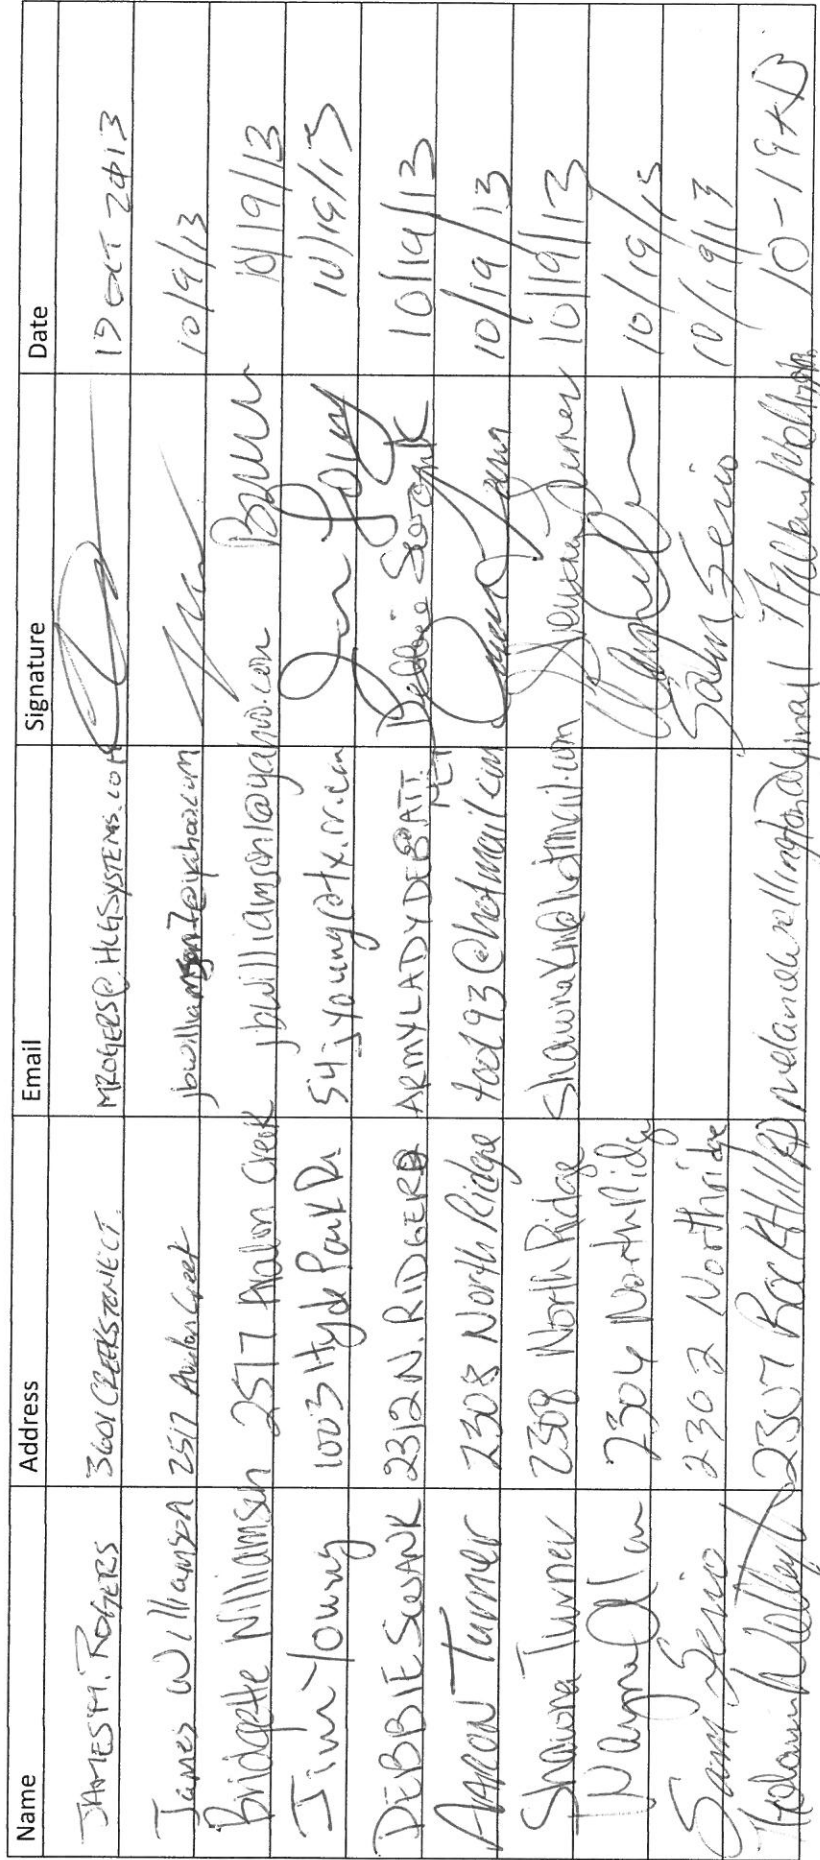 Name Address Email Signature Date
JAMES M. ROGERS 3601 CREEKSTONE CT. MROGERS@HCGSYSTEMS.COM 19 OCT 2013
James Williamson 2517 Avalon Creek jbwilliamson7@yahoo.com 10/9/13
Bridgette Williamson 2517 Avalon Creek jbwilliamson1@yahoo.com 10/19/13
Jim Young 1003 Hyde Park Dr. 54jyoung@tx.rr.com Jim Young 10/19/13
DEBBIE SWANK 2312 N. RIDGE RD ARMYLADYDEB@ATT.NET Debbie Swank 10/19/13
Aaron Turner 2308 North Ridge tool93@hotmail.com 10/19/13
Shawna Turner 2308 North Ridge shawnaxm@hotmail.com Shawna Turner 10/19/13
Wayne 2304 North Ridge 10/19/13
Sam Serio 2302 Northridge Sam Serio 10/19/13
Melanie Wellington 2307 Rock Hill RD melaniewellington@gmail 10-19-13